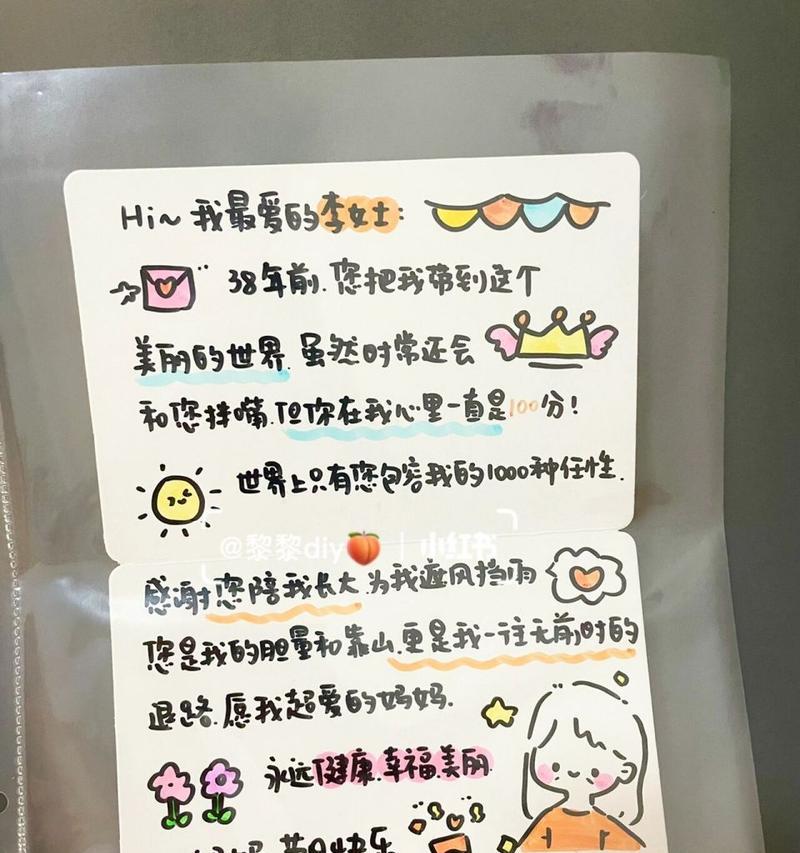 Hi~ 我最爱的李女士:
38年前.您把我带到这个
美丽的世界.虽然时常还会
和您拌嘴.但你在我心里一直是100分!
世界上只有您包容我的1000种任性.
@黎黎diy🍑 | 小红书
感谢您陪我长大.为我遮风挡雨
您是我的胆量和靠山.更是我一往无前时的
退路.愿我超爱的妈妈.
永远健康.幸福.美丽
节日快乐